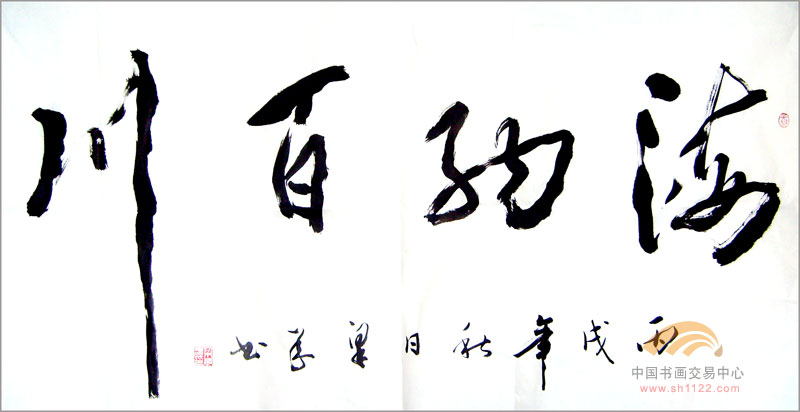 海纳百川
丙戌年秋日梁书
中国书画交易中心
www.sh1122.com